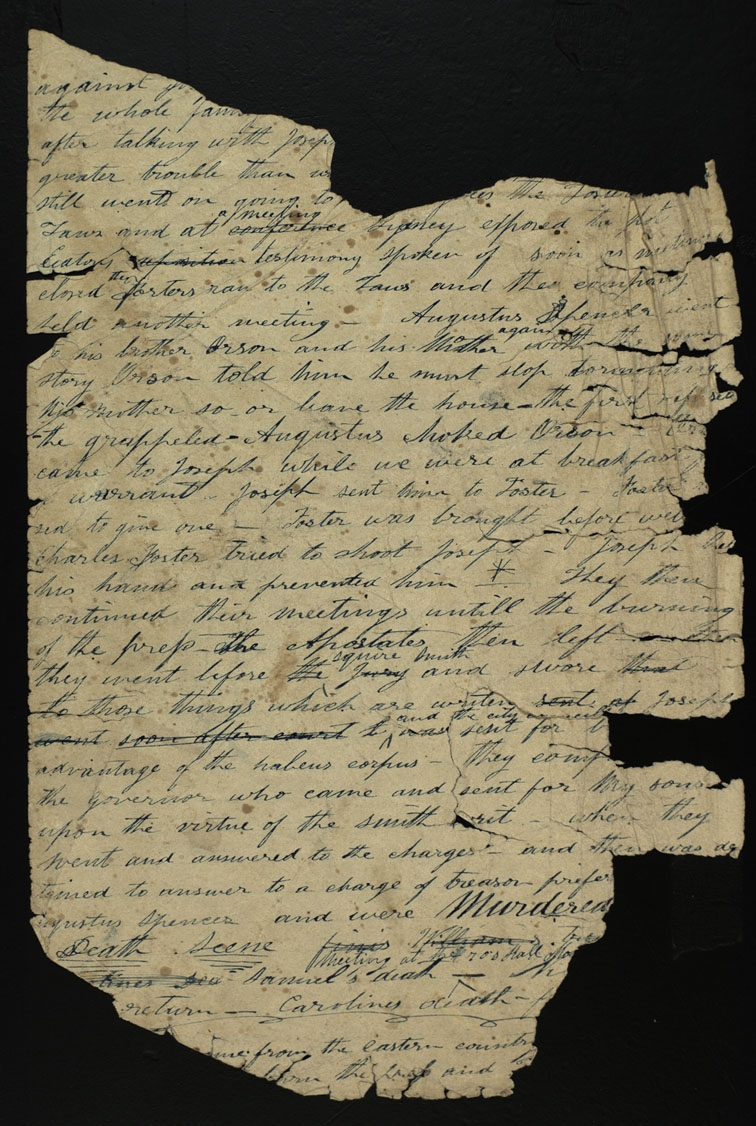 against
the whole fam
after talking with Josep
greater trouble than w
still went on going to the Foster
Laws and at a meeting conference Sydney exposed the plot
testimony spoken of soon as meeting
closed the Fosters ran to the Laws and the company
held another meeting — Augustus Spencer went
to his brother Orson and his Mother again with the same
story Orson told him he must stop tormenting
his mother so or leave the house — the first
the grappeled — Augustus choked Orson —
came to Joseph while we were at breakfast
a warrant — Joseph sent him to Foster — Foster
sed to give one — Foster was brought before
Charles Foster tried to shoot Joseph — Joseph
his hand and prevented him They then
continued their meetings untill the burning
of the press — the Apostates then left
they went before the Jury squire Smith and swore that
to those things which are writen sent at Joseph
went soon after court t was and the city sent for
advantage of the habeus corpus — they comp
the governor who came and sent for My sons
upon the virtue of the smith rit — when they
went and answered to the charges — and then was de
tained to answer to a charge of treason prefer
ugustus Spencer and were Murdered
Death Scene
meeting at the
Samuel's death —
return — Carolines death —
me from the eastern countr
born the and